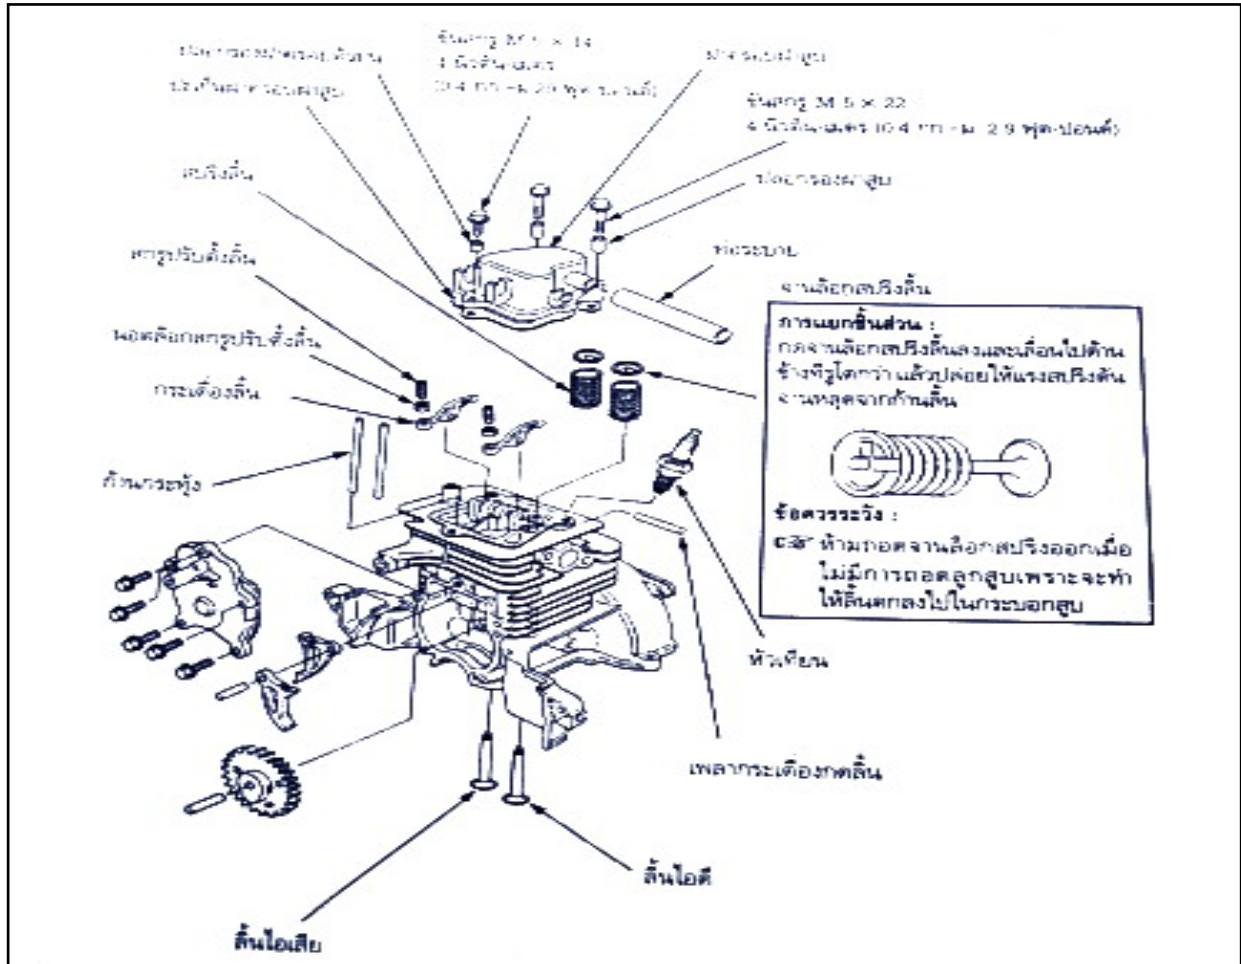 ปลอกรองฝาครอบ
ปะเก็นฝาครอบฝาสูบ
ขันสกรู M 5 × 14
4 นิวตัน-เมตร
(0.4 กก.-ม 2.9 ฟุต-ปอนด์)
ฝาครอบฝาสูบ
ขันสกรู M 5 × 22
4 นิวตัน-เมตร (0.4 กก.-ม 2.9 ฟุต-ปอนด์)
ปลอกรองฝาสูบ
สปริงลิ้น
สกรูปรับตั้งลิ้น
ท่อระบาย
จานล็อกสปริงลิ้น
นอตล็อกสกรูปรับตั้งลิ้น
กระเดื่องลิ้น
ก้านกระทุ้ง
การแยกชิ้นส่วน :
กดจานล็อกสปริงลิ้นลงและเลื่อนไปด้าน
ข้างที่รูโตกว่า แล้วปล่อยให้แรงสปริงดัน
จานหลุดจากก้านลิ้น
ข้อควรระวัง :
☞ ห้ามถอดจานล็อกสปริงออกเมื่อ
ไม่มีการถอดลูกสูบเพราะจะทำ
ให้ลิ้นตกลงไปในกระบอกสูบ
หัวเทียน
เพลากระเดื่องกดลิ้น
ลิ้นไอดี
ลิ้นไอเสีย